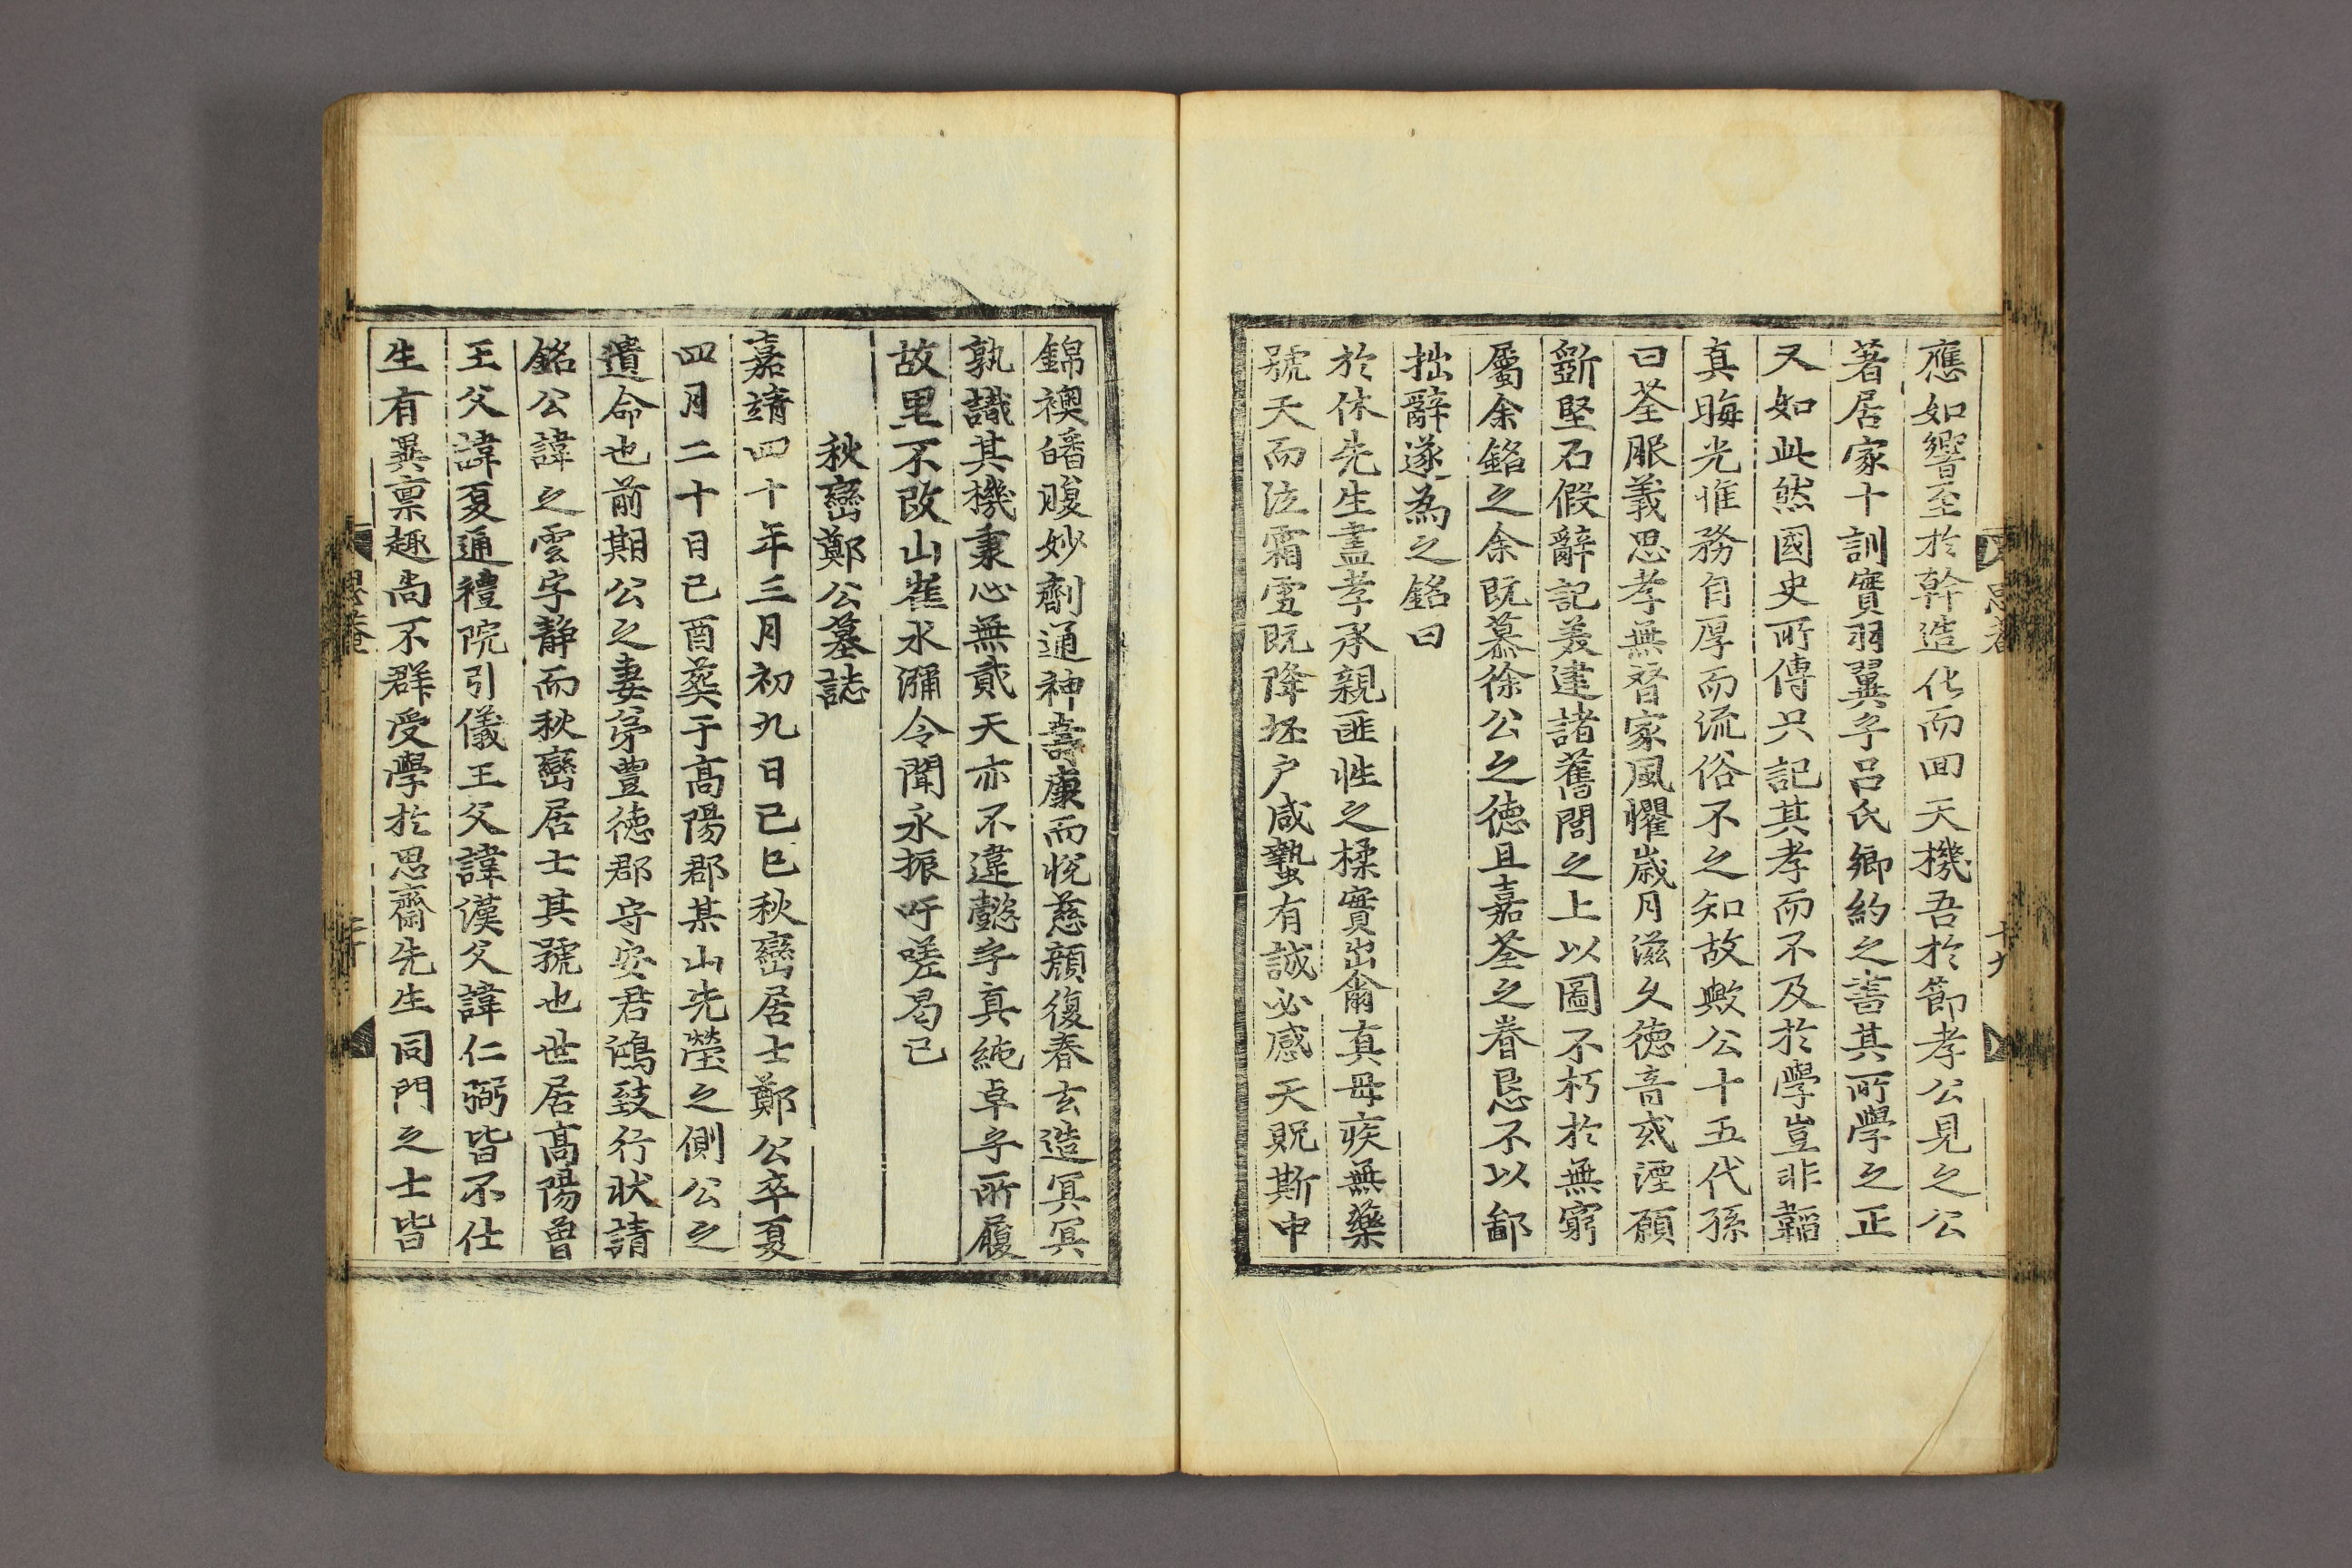 應如響至於幹造化而回天機吾於節孝公見之公
著居家十訓實羽翼乎呂氏鄉約之書其所學之正
又如此然國史所傳只記其孝而不及於學豈非韜
真晦光惟務自厚而流俗不之知故歟公十五代孫
曰荃服義思孝無替家風懼歲月滋久德音或湮願
斲堅石假辭記羨建諸舊閭之上以圖不朽於無窮
屬余銘之余既慕徐公之德且嘉荃之眷眷不以鄙
拙辭遂為之銘曰
於休先生盡孝承親匪性之揉實出爾真母疾無藥
號天而泣霜雪既降坯户咸蟄有誠必感天貺斯中
錦襖皤腹妙劑通神壽康而悅慈顏復春玄造冥冥
孰識其機秉心無貳天亦不違懿乎真純卓乎所履
故里不改山崔水瀰令聞永振吁嗟曷已
秋巒鄭公墓誌
嘉靖四十年三月初九日己巳秋巒居士鄭公卒夏
四月二十日己酉葬于高陽郡某山先塋之側公之
遺命也前期公之妻弟豊德郡守安君鴻致行狀請
銘公諱之雲字靜而秋巒居士其號也世居高陽曾
王父諱夏通禮院引儀王父諱漢父諱仁弼皆不仕
生有異禀趣尚不群受學於思齋先生同門之士皆
思菴 十九
思菴 二十